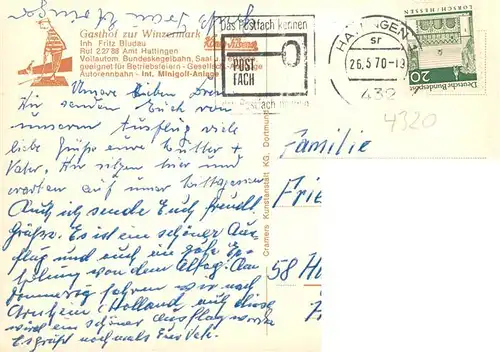 Gasthof zur Winzermark
Inh. Fritz Bludau
Ruf 22788 Amt Hattingen
Vollautom. Bundeskegelbahn, Saal
geeignet für Betriebsfeiern - Gesellschafts-
Autorennbahn - Int. Minigolf-Anlage
Das Postfach kennen
POST
FACH
Das Postfach kennen
HATTINGEN
sr
26.5.70-19
432
LORSCH/HESSEN
Deutsche Bundespost
20
4320
Unsere lieben Drei
Wir senden Euch von
unserem Ausflug viele
liebe Grüße eure Mutter +
Vater. Wir sitzen hier und
warten auf unser Mittagessen
Auch ich sende Euch freundl
Grüße. Es ist ein schöner Aus
flug und auch ein gute Er
holung von dem Alltag. Am
Donnerstag fahren wir nach
Arnheim (Holland, auch diese
wird ein schöner Ausflug werden
Es grüßt nochmals Euer Vater.
Cramers Kunstanstalt KG, Dortmund
Familie
Frie
58 Ha